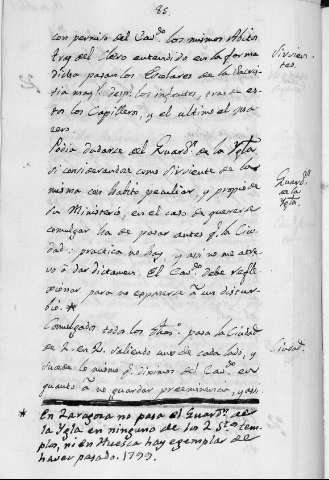 85.
con permiso del Cav.do los mismos Abitos
tras del Clero entendido en la forma
dicha pasan los Escolares de la Sacris
tia mayr. desps. los infantes, tras de es
tos los Capilleros, y el ultimo el
Sirvien
tes.
Podia dudarse del Guardn. de la Ygla.
si considerandose como Sirviente de la
misma con habito peculiar, y propio de
su Ministerio, en el caso de quererse
comulgar ha de pasar antes q. la Ciu
dad: practica no hay, y asi no me atre
vo à dar dictamen. El Cavdo. debe refle
xionar para no exponerse à un distur
bio. *
Guardn.
de la
Ygla.
Comulgados todos los pasa la Ciudad
de 2. en 2. saliendo uno de cada lado, y
sucede lo mismo q. dixímos del Cavdo. en
quanto à no guardar preeminencia, y asi
Ciudad.
* En Zaragoza no pasa el Guardn. de
la Ygla en ninguno de los 2 Stos. tem
plos, ni en Huesca hay exemplar de
haver pasado. 1799.